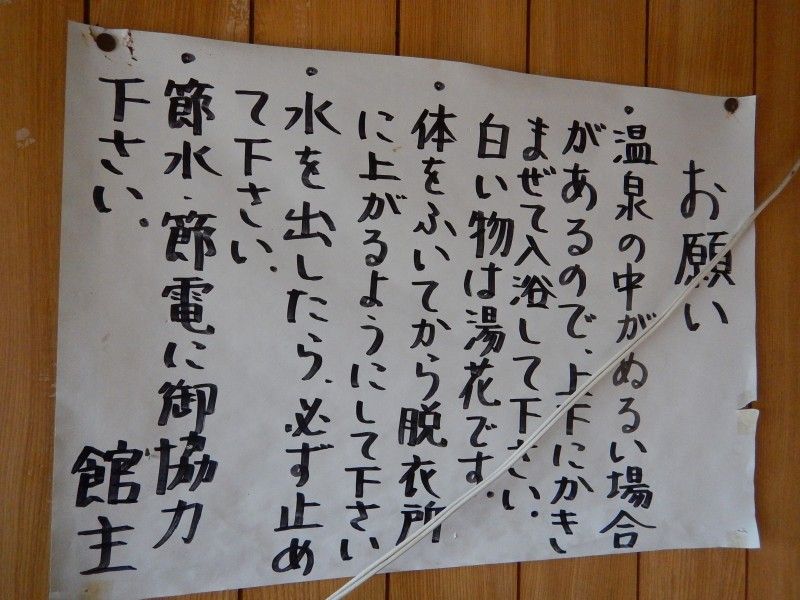 お願い
・温泉の中がぬるい場合
があるので、上下にかきい
まぜて入浴して下さい.
白い物は湯花です.
・体をふいてから脱衣所
に上がるようにして下さい
・水を出したら、必ず止め
て下さい.
・節水・節電に御協力
下さい.
館主